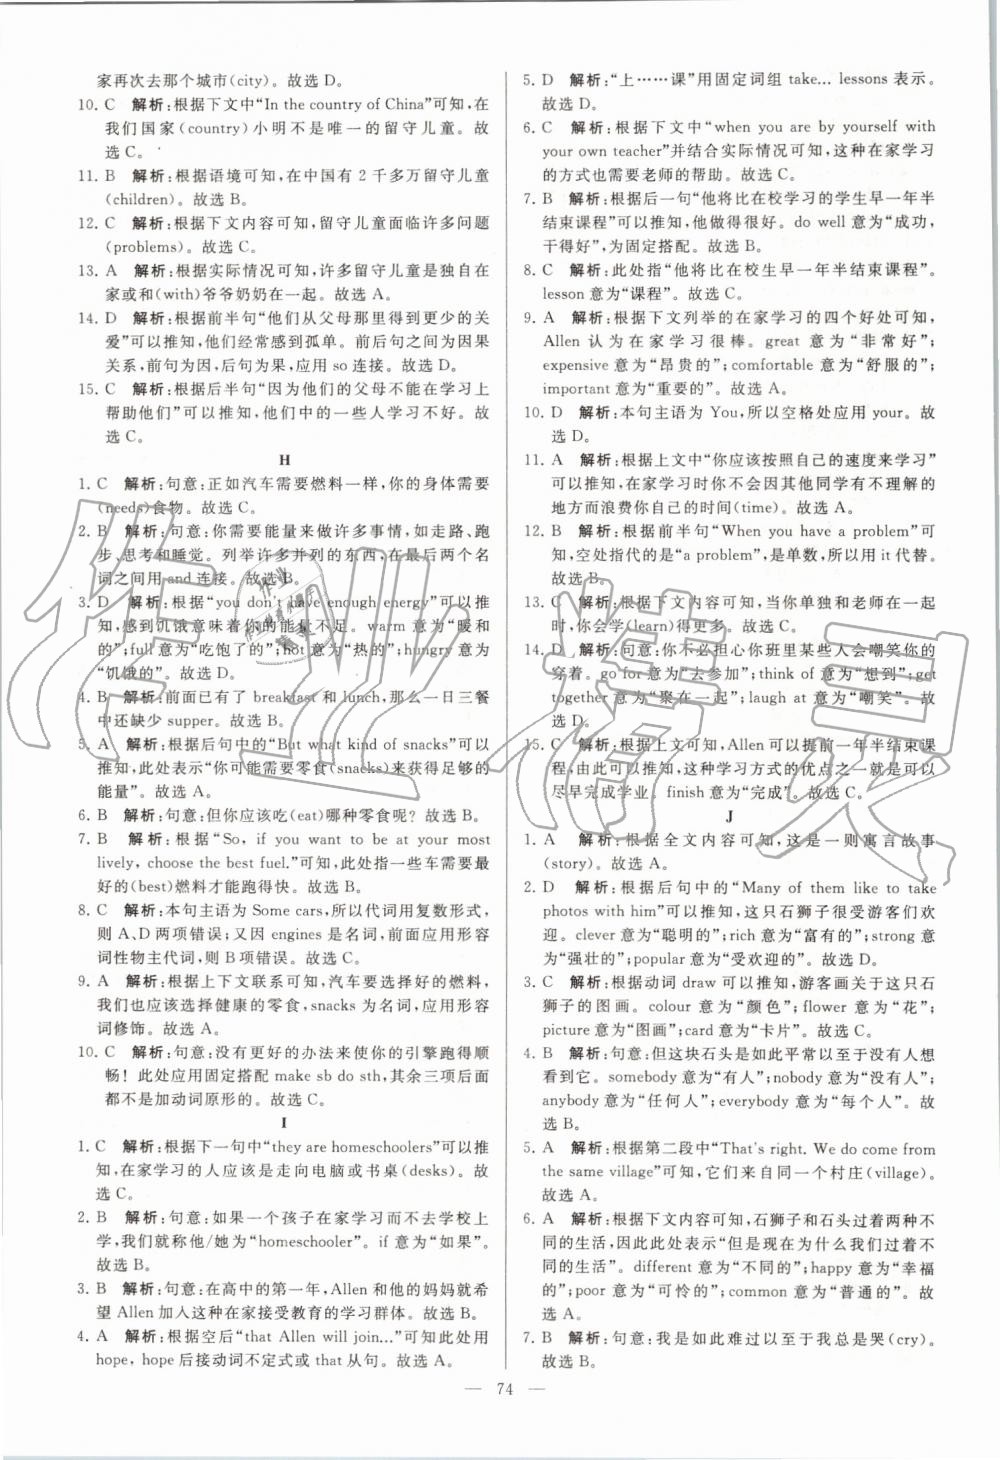 家再次去那个城市(city)。故选 D。
10. C 解析:根据下文中“In the country of China”可知,在
我们国家(country)小明不是唯一的留守儿童。故
选 C。
11. B 解析:根据语境可知,在中国有 2 千多万留守儿童
(children)。故选 B。
12. C 解析:根据下文内容可知,留守儿童面临许多问题
(problems)。故选 C。
13. A 解析:根据实际情况可知,许多留守儿童是独自在
家或和(with)爷爷奶奶在一起。故选 A。
14. D 解析:根据前半句“他们从父母那里得到更少的关
爱”可以推知,他们经常感到孤单。前后句之间为因果
关系,前句为因,后句为果,应用 so 连接。故选 D。
15. C 解析:根据后半句“因为他们的父母不能在学习上
帮助他们”可以推知,他们中的一些人学习不好。故
选 C。
H
1. C 解析:句意:正如汽车需要燃料一样,你的身体需要
(needs)食物。故选 C。
2. B 解析:句意:你需要能量来做许多事情,如走路、跑
步、思考和睡觉。列举许多并列的东西,在最后两个名
词之间用 and 连接。故选 B。
3. D 解析:根据“you don't have enough energy”可以推
知,感到饥饿意味着你的能量不足。warm 意为“暖和
的”;full 意为“吃饱了的”;hot 意为“热的”;hungry 意为
“饥饿的”。故选 D。
4. B 解析:前面已有了 breakfast 和 lunch,那么一日三餐
中还缺少 supper。故选 B。
5. A 解析:根据后句中的“But what kind of snacks”可以
推知,此处表示“你可能需要零食(snacks)来获得足够的
能量”。故选 A。
6. B 解析:句意:但你应该吃(eat)哪种零食呢?故选 B。
7. B 解析:根据“So, if you want to be at your most
lively, choose the best fuel.”可知,此处指一些车需要最
好的(best)燃料才能跑得快。故选 B。
8. C 解析:本句主语为 Some cars,所以代词用复数形式,
则 A、D 两项错误;又因 engines 是名词,前面应用形容
词性物主代词,则 B 项错误。故选 C。
9. A 解析:根据上下文联系可知,汽车要选择好的燃料,
我们也应该选择健康的零食,snacks 为名词,应用形容
词修饰。故选 A。
10. C 解析:句意:没有更好的办法来使你的引擎跑得顺
畅!此处应用固定搭配 make sb do sth,其余三项后面
都不是加动词原形的。故选 C。
I
1. C 解析:根据下一句中“they are homeschoolers”可以推
知,在家学习的人应该是走向电脑或书桌(desks)。故
选 C。
2. B 解析:句意:如果一个孩子在家学习而不去学校上
学,我们就称他/她为“homeschooler”。if 意为“如果”。
故选 B。
3. B 解析:句意:在高中的第一年,Allen 和他的妈妈就希
望 Allen 加入这种在家接受教育的学习群体。故选 B。
4. A 解析:根据空后“that Allen will join...”可知此处用
hope, hope 后接动词不定式或 that 从句。故选 A。
5. D 解析:“上……课”用固定词组 take... lessons 表示。
故选 D。
6. C 解析:根据下文中“when you are by yourself with
your own teacher”并结合实际情况可知,这种在家学习
的方式也需要老师的帮助。故选 C。
7. B 解析:根据后一句“他将比在校学习的学生早一年半
结束课程”可以推知,他做得很好。do well 意为“成功,
干得好”,为固定搭配。故选 B。
8. C 解析:此处指“他将比在校生早一年半结束课程”。
lesson 意为“课程”。故选 C。
9. A 解析:根据下文列举的在家学习的四个好处可知,
Allen 认为在家学习很棒。great 意为“非常好”;
expensive 意为“昂贵的”;comfortable 意为“舒服的”;
important 意为“重要的”。故选 A。
10. D 解析:本句主语为 You,所以空格处应用 your。故
选 D。
11. A 解析:根据上文中“你应该按照自己的速度来学习”
可知,在家学习时你不会因其他同学有不理解的
地方而浪费你自己的时间(time)。故选 A。
12. B 解析:根据前半句“When you have a problem”可
知,空处指代的是“a problem”,是单数,所以用 it 代替。
故选 B。
13. C 解析:根据下文内容可知,当你单独和老师在一起
时,你会学(learn)得更多。故选 C。
14. D 解析:句意:你不必担心你班里某些人会嘲笑你的
穿着。go for 意为“去参加”;think of 意为“想到”;get
together 意为“聚在一起”;laugh at 意为“嘲笑”。故
选 D。
15. C 解析:根据上文可知,Allen 可以提前一年半结束课
程,由此可以推知,这种学习方式的优点之一就是可以
尽早完成学业。finish 意为“完成”。故选 C。
J
1. A 解析:根据全文内容可知,这是一则寓言故事
(story)。故选 A。
2. D 解析:根据后句中的“Many of them like to take
photos with him”可以推知,这只石狮子很受游客们欢
迎。clever 意为“聪明的”;rich 意为“富有的”;strong 意
为“强壮的”;popular 意为“受欢迎的”。故选 D。
3. C 解析:根据动词 draw 可以推知,游客画关于这只石
狮子的图画。colour 意为“颜色”;flower 意为“花”;
picture 意为“图画”;card 意为“卡片”。故选 C。
4. B 解析:句意:但这块石头是如此平常以至于没有人想
看到它。somebody 意为“有人”;nobody 意为“没有人”;
anybody 意为“任何人”;everybody 意为“每个人”。故
选 B。
5. A 解析:根据第二段中“That's right. We do come from
the same village”可知,它们来自同一个村庄(village)。
故选 A。
6. A 解析:根据下文内容可知,石狮子和石头过着两种不
同的生活,因此此处表示“但是现在为什么我们过着不
同的生活”。different 意为“不同的”;happy 意为“幸福
的”;poor 意为“可怜的”;common 意为“普通的”。故
选 A。
7. B 解析:句意:我是如此难过以至于我总是哭(cry)。
故选 B。
— 74 —
作业精灵